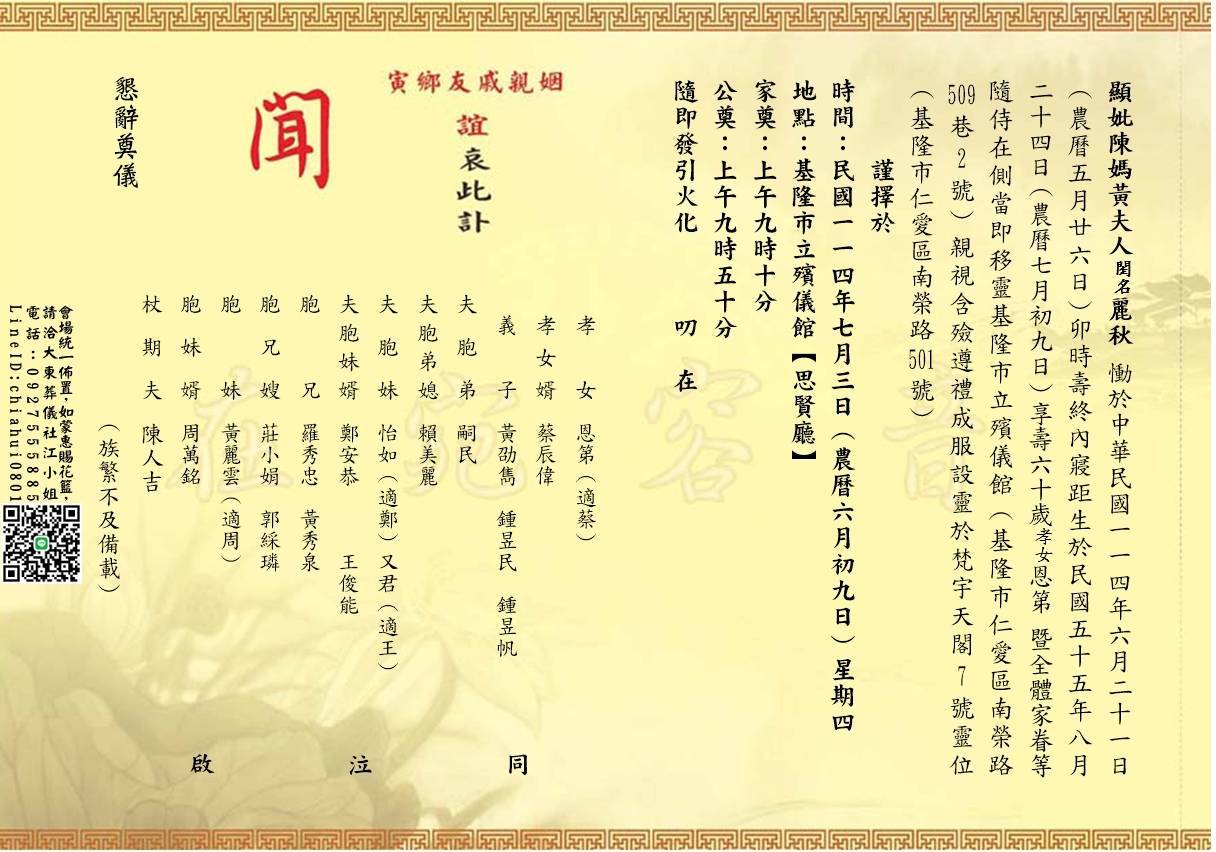 顯妣陳媽黃夫人閨名麗秋 慟於中華民國一一四年六月二十一日
（農曆五月廿六日）卯時壽終內寢距生於民國五十五年八月
二十四日（農曆七月初九日）享壽六十歲孝女恩第 暨全體家眷等
隨侍在側當即移靈基隆市立殯儀館（基隆市仁愛區南榮路
509巷2號）親視含殮遵禮成服設靈於梵宇天閣7號靈位
（基隆市仁愛區南榮路501號）
謹擇於
時間：民國一一四年七月三日（農曆六月初九日）星期四
地點：基隆市立殯儀館【思賢廳】
家奠：上午九時十分
公奠：上午九時五十分
隨即發引火化 叨在
姻親戚友鄉寅
誼哀此訃
聞
懇辭奠儀
孝女 恩第（適蔡）
孝女婿 蔡辰偉
義子 黃劭雋 鍾昱民 鍾昱帆
夫胞弟 嗣民
夫胞弟媳 賴美麗
夫胞妹 怡如（適鄭）又君（適王）
夫胞妹婿 鄭安恭 王俊能
胞兄 羅秀忠 黃秀泉
胞兄嫂 莊小娟 郭綵璘
胞妹 黃麗雲（適周）
胞妹婿 周萬銘
杖期夫 陳人吉
（族繁不及備載）
同泣啟
會場統一佈置，如蒙惠賜花籃，
請洽大東葬儀社江小姐
電話：0927555885
LineID:chiahui0801
音容宛在